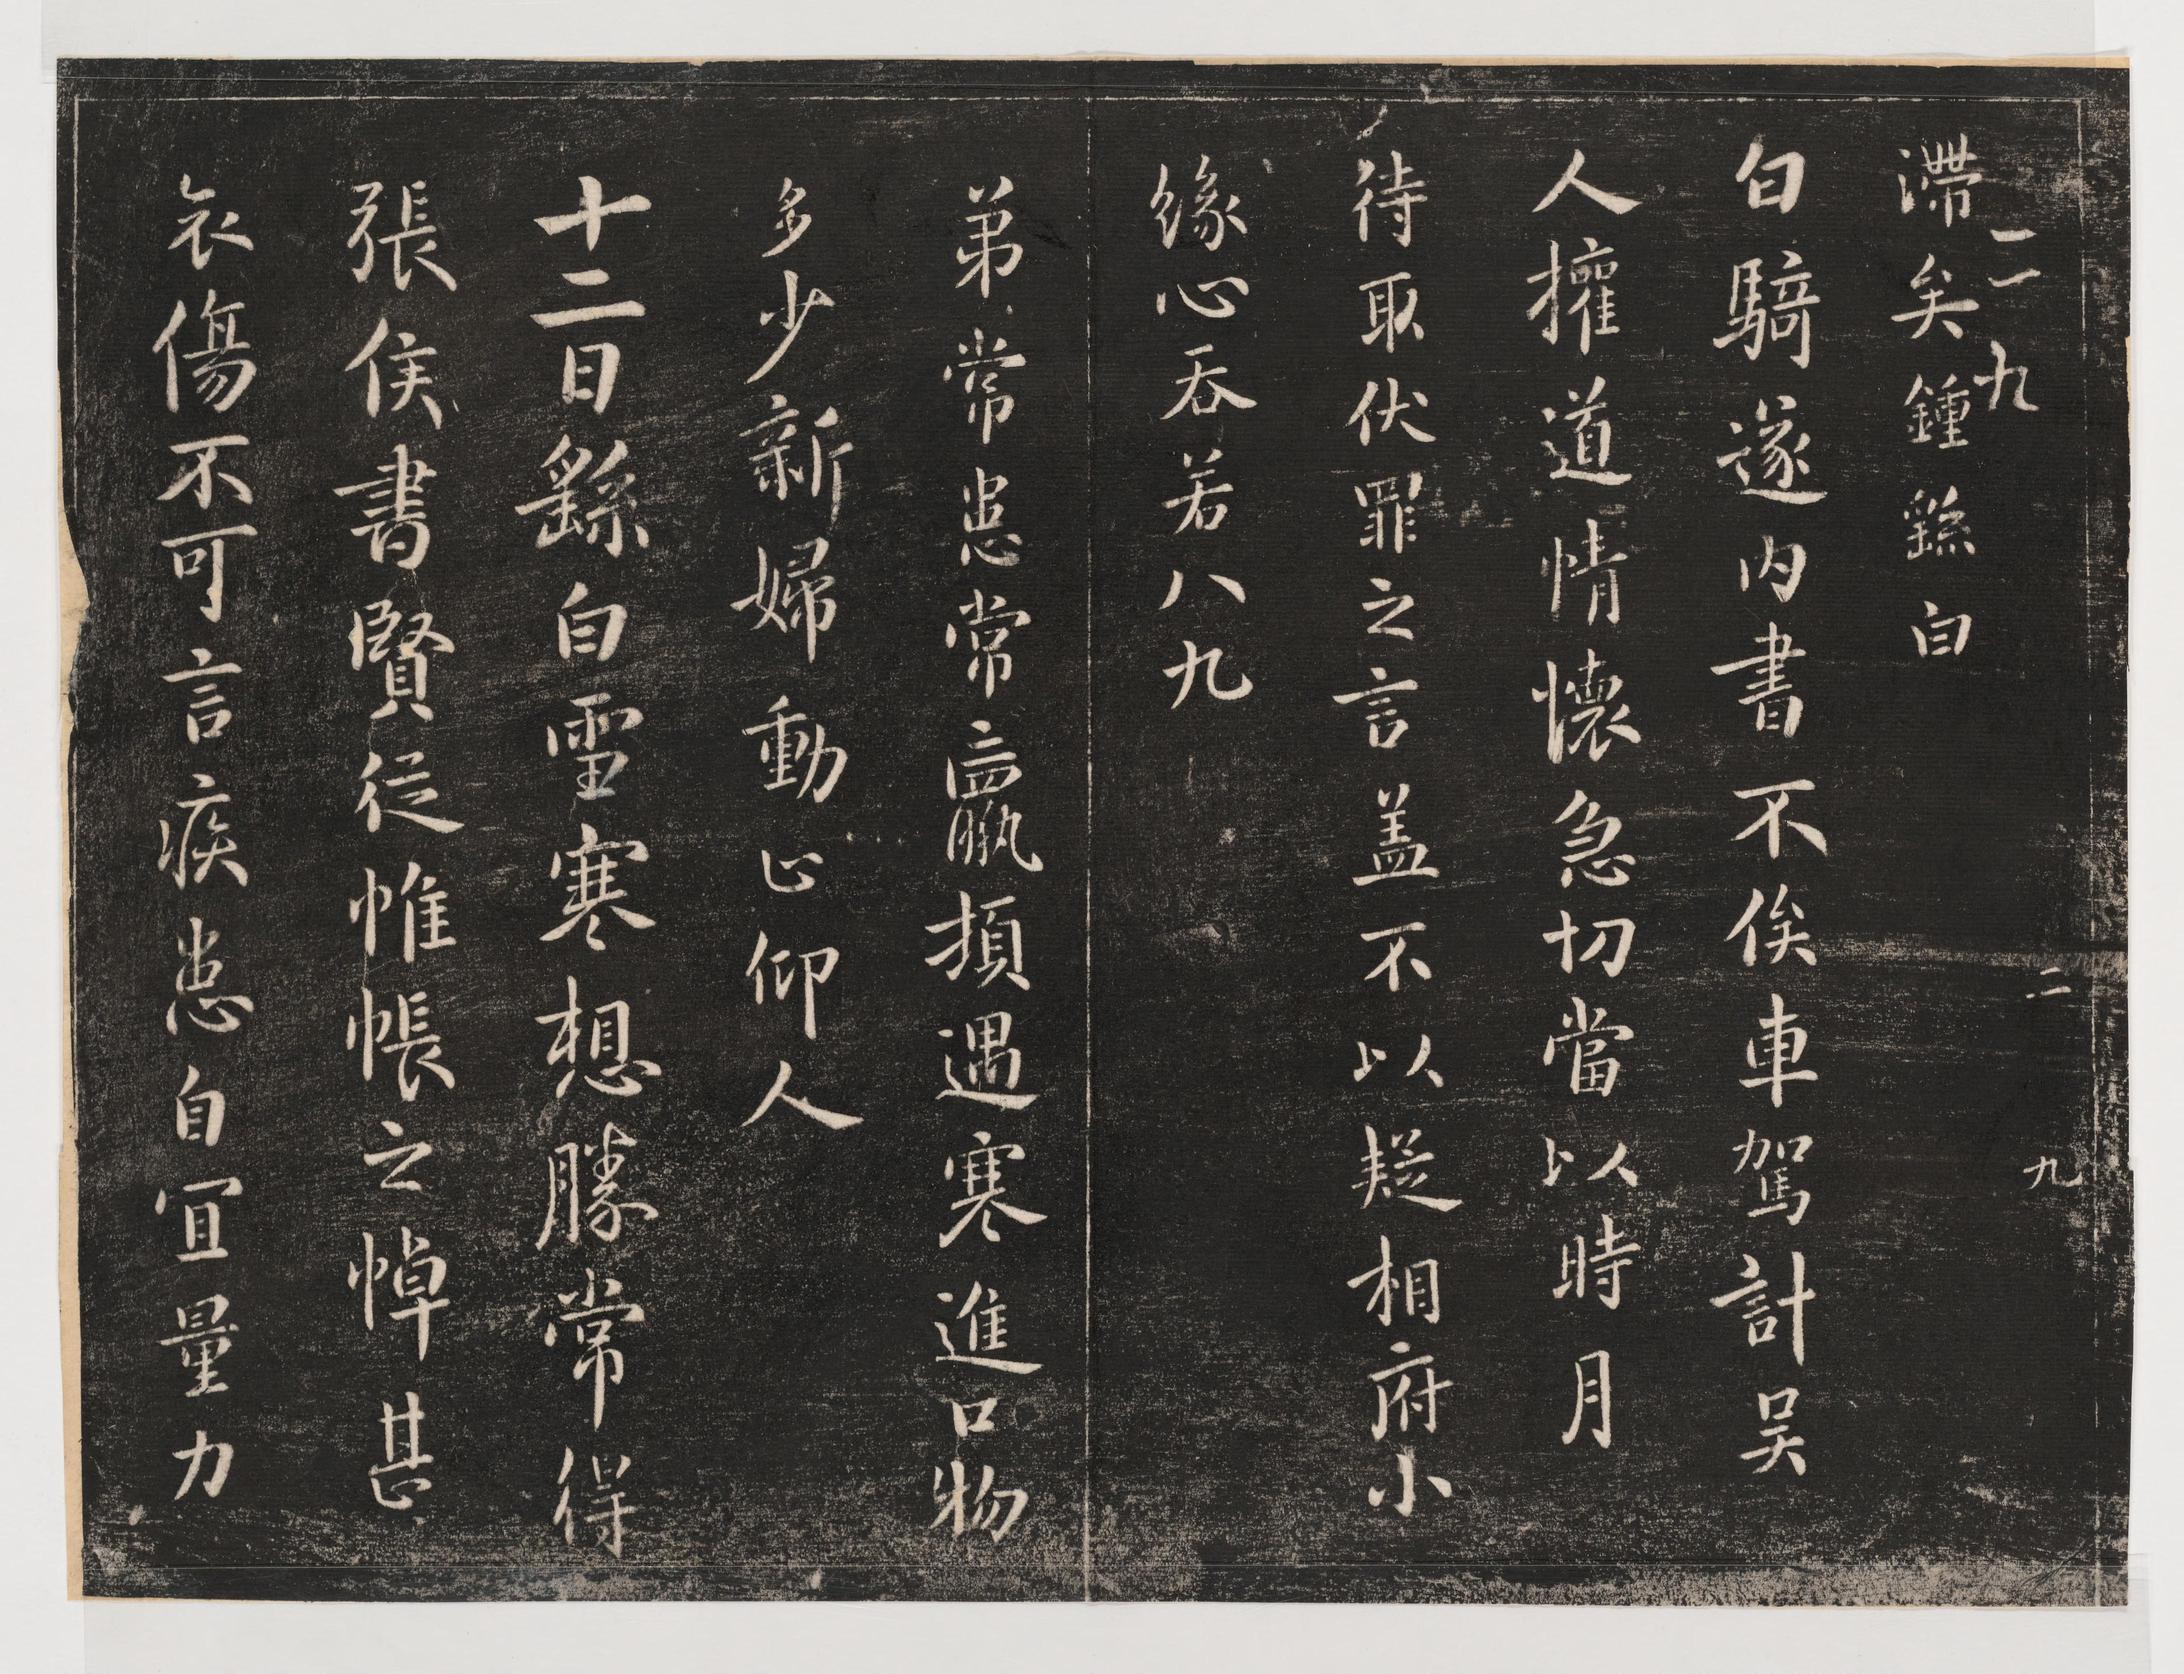 二九
二 九
滯矣鍾繇白
白騎遂內書不俟車駕計吴
人權道情懷急切當以時月
待取伏罪之言盖不以疑相府小
緣心吞若八九
弟常患常羸損遇寒進口物
多少新婦動止仰人
十二日繇白雪寒想勝常得
張侯書賢從帷帳之悼甚
哀傷不可言疾患自宜量力